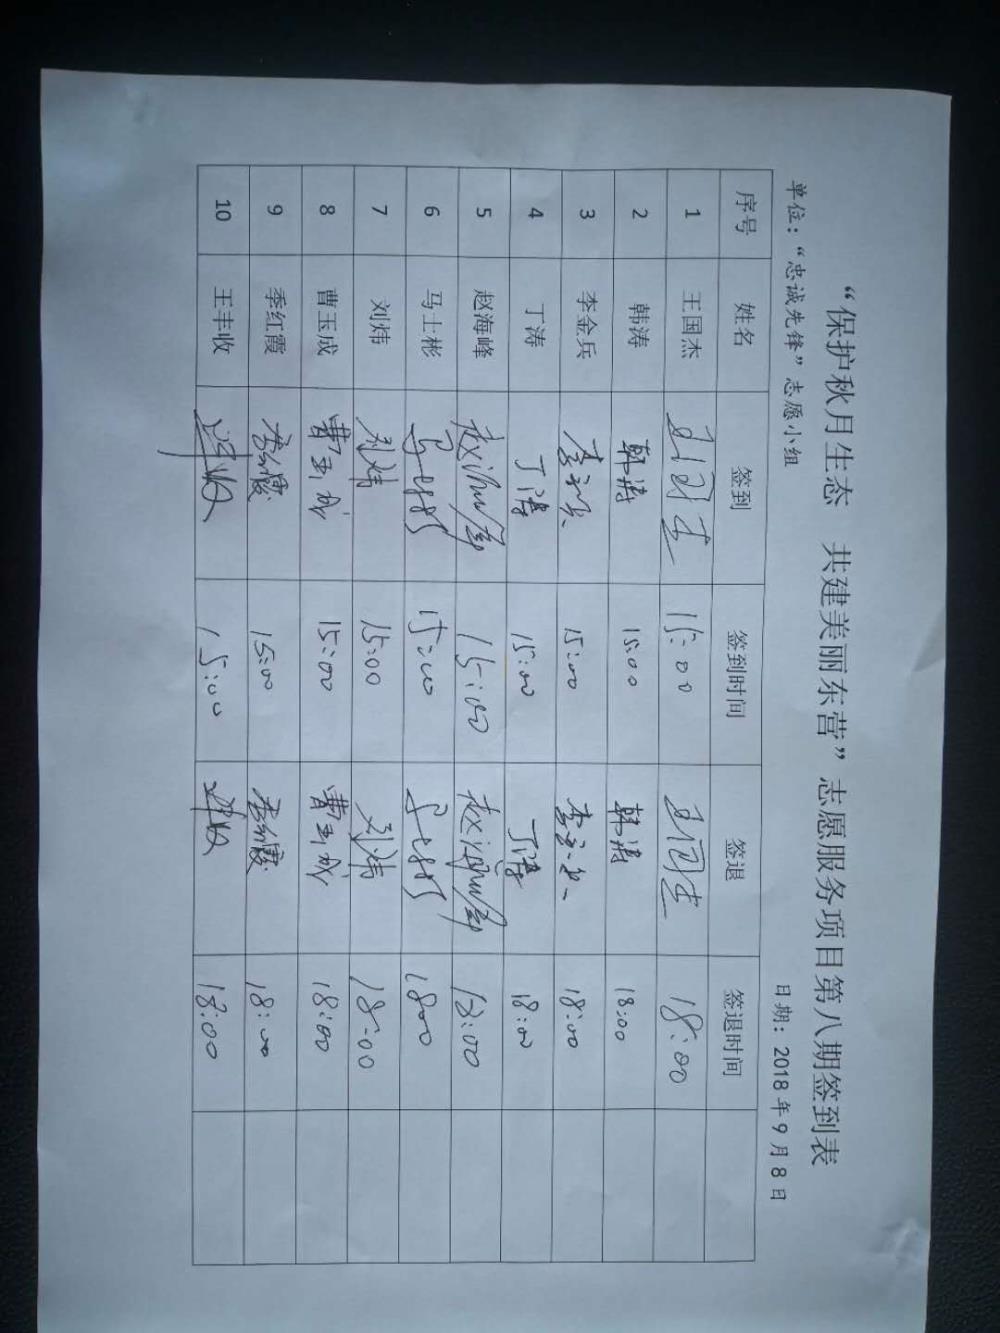 “保护秋月生态 共建美丽东营”志愿服务项目第八期签到表
单位：“忠诚先锋”志愿小组 日期：2018年9月8日
序号 姓名 签到 签到时间 签退 签退时间
1 王国杰 王国杰 15:00 王国杰 18:00
2 韩涛 韩涛 15:00 韩涛 18:00
3 李金兵 李金兵 15:00 李金兵 18:00
4 丁涛 丁涛 15:00 丁涛 18:00
5 赵海峰 赵海峰 15:00 赵海峰 18:00
6 马士彬 马士彬 15:00 马士彬 1800
7 刘炜 刘炜 15:00 刘炜 18:00
8 曹玉成 曹玉成 15:00 曹玉成 18:00
9 季红霞 季红霞 15:00 季红霞 18:00
10 王丰收 王丰收 15:00 王丰收 18:00